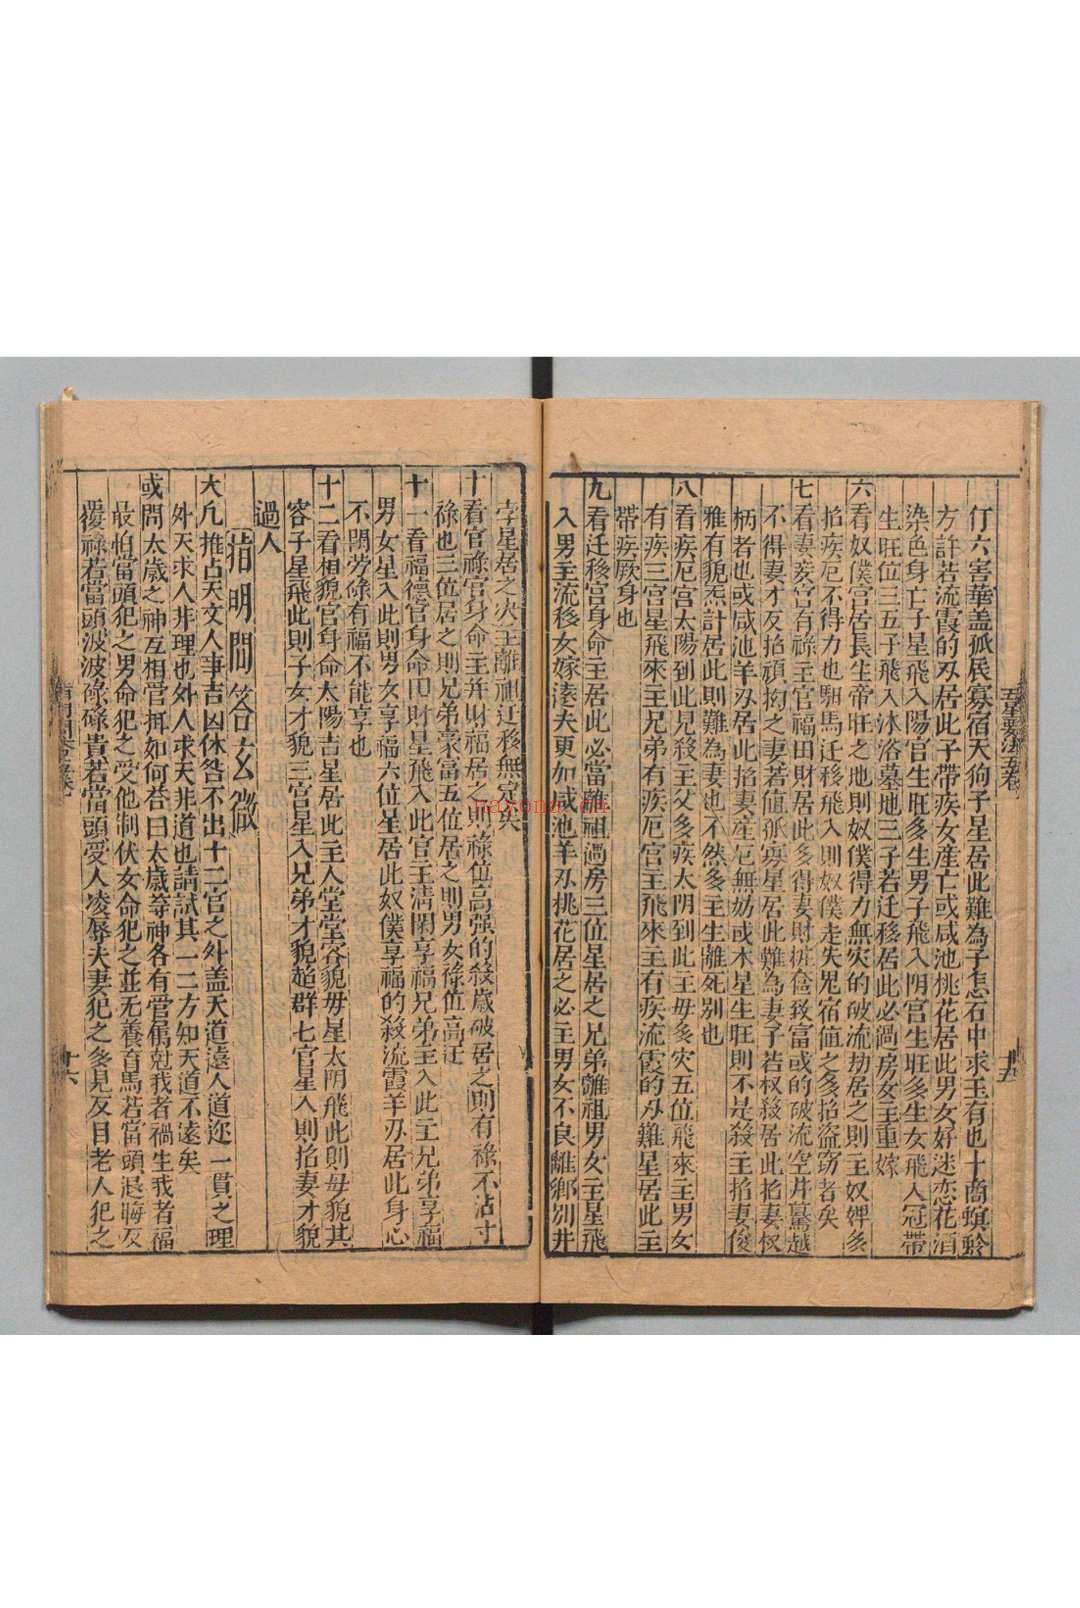 仃六害華盖孤辰寡宿天狗子星居此難為子怎石中求玉有也十商螟蛉
方許若流霞的刄居此子帶疾女産亡或咸池桃花居此男女好迷恋花酒
染色身亡子星飛入陽宫生旺多生男子飛入阴宫生旺多生女飛入冠帶
生旺位三五子飛入沐浴墓地三子若迁移居此必過房女主重嫁
六看奴僕宫居長生帝旺之地則奴僕得力無灾的破流劫居之則主奴婢多
招疾厄不得力也駟馬迁移飛入則奴僕走失鬼宿值之多招盗窃者矣
七看妻妾宫有祿主官福田財居此多得妻財拼奩致富或的破流空井驀越
不得妻才友招頑拘之妻若值孤寡星居此難為妻子若权殺居此招妻权
柄者也或咸池羊刄居此招妻産厄無妨或木星生旺則不是殺主招妻俊
雅有貌炁計居此則難為妻也不然多主生離死别也
八看疾厄宫太陽到此見殺主父多疾太阴到此主毋多灾五位飛來主男女
有疾三宫星飛來主兄弟有疾厄官主飛來主有疾流霞的刄難星居此主
帶疾厥身也
九看迁移宫身命主居此必當離祖過房三位星居之兄弟離祖男女主星飛
入男主流移女嫁逺夫更加咸池羊刄桃花居之必主男女不良離鄉别井
五星要法五卷
十五
孛星居之决主離祖迁移無定矣
十看官祿宫身命主并財福居之則祿位高强的殺歲破居之則有祿不沾寸
祿也三位居之則兄弟豪富五位居之則男女祿位高迁
十一看福德宫身命田財星飛入此宫主清閑享福兄弟主入此主兄弟享福
男女星入此則男女享福六位星居此奴僕享福的殺流霞羊刄居此身心
不閑劳碌有福不能享也
十二看相貌宫身命太陽吉星居此主人堂堂容貌毋星太阴飛此則毋貌其
容子星飛此則子女才貌三宫星入兄弟才貌超群七宫星入則招妻才貌
過人
指明問答玄微
大凡推占天文人事吉凶休咎不出十二宫之外盖天道遠人道迩一貫之理
外天求人非理也外人求天非道也請試其一二方知天道不遠矣
或問太歲之神互相管摂如何荅曰太歲等神各有管属尅我者禍生我者福
最怕當頭犯之男命犯之受他制伏女命犯之並无養育馬若當頭退晦反
覆祿若當頭波波碌碌貴若當頭受人凌辱夫妻犯之多見反目老人犯之
十六